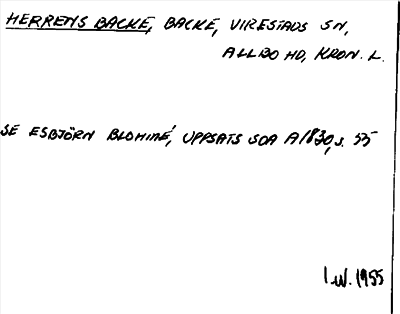 HERRENS BACKE, BACKE, VIRESTADS SN,
ALLBO HD, KRON. L.
SE ESBJÖRN BLOMINÉ, UPPSATS SOA A1830, S. 55
I.W. 1955